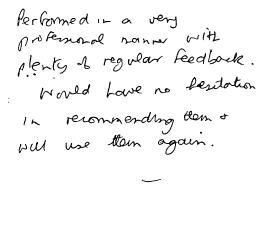 Performed in a very
professional manner with
plenty of regular feedback.
Would have no hesitation
in recommending them &
will use them again.